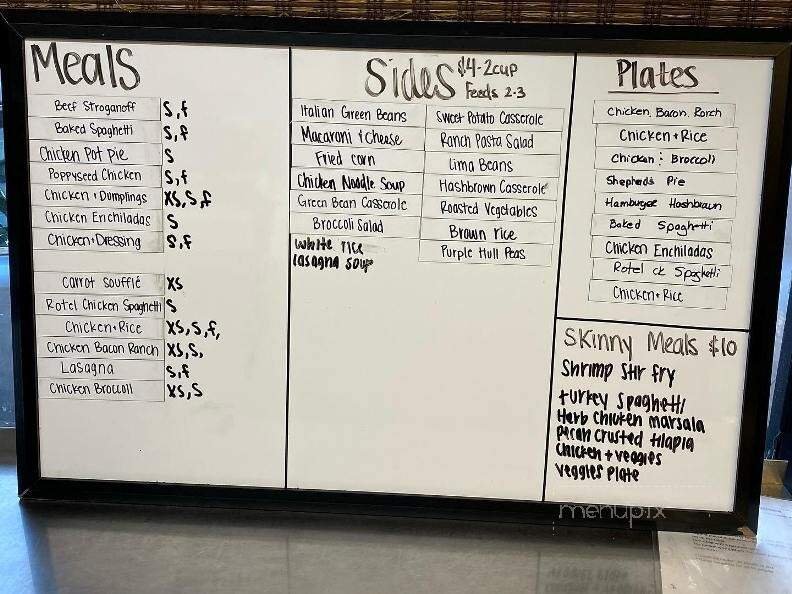 Meals
Beef Stroganoff S,f
Baked Spaghetti S,f
Chicken Pot pie S
Poppyseed Chicken S,f
Chicken + Dumplings XS,S,f
Chicken Enchiladas S
Chicken+Dressing S,f
Carrot soufflé XS
Rotel Chicken Spaghetti S
Chicken+Rice XS,S,f,
Chicken Bacon Ranch XS,S,
Lasagna S,f
Chicken Broccoli XS,S
Sides $4-2cup
Feeds 2-3
Italian Green Beans
Macaroni + Cheese
Fried corn
Chicken Noodle Soup
Green Bean Casserole
Broccoli Salad
white rice
lasagna soup
Sweet Potato Casserole
Ranch Pasta Salad
Lima Beans
Hashbrown Casserole
Roasted Vegetables
Brown rice
Purple Hull Peas
Plates
Chicken, Bacon, Ranch
Chicken + Rice
Chicken : Broccoli
Shepherds Pie
Hamburger Hashbrown
Baked Spaghetti
Chicken Enchiladas
Rotel ck Spaghetti
Chicken+Rice
Skinny Meals $10
Shrimp Stir fry
turkey spaghetti
Herb Chicken marsala
Pecan Crusted tilapia
Chicken + veggies
veggies Plate
menupix